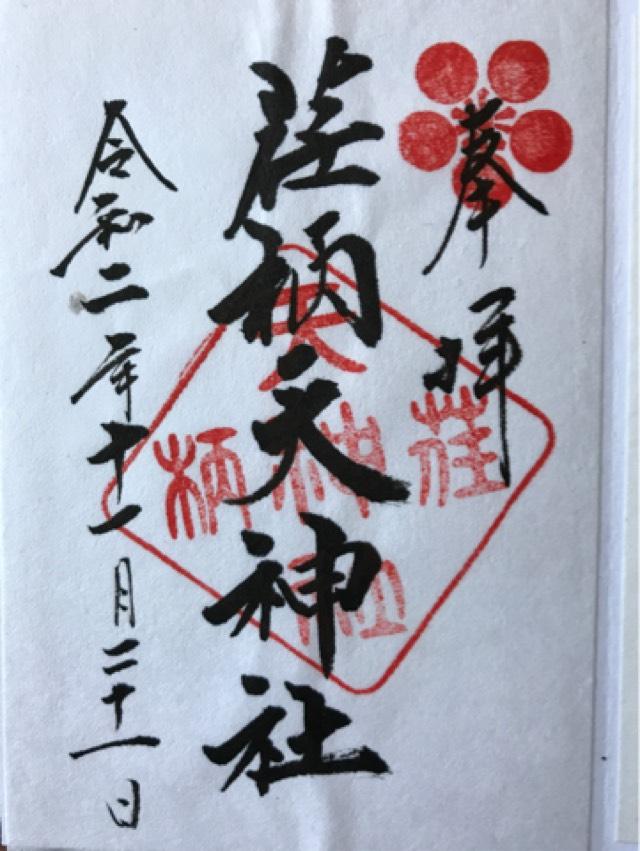 奉拝
荏柄天神社
令和二年十一月二十一日
荏
天神社
柄